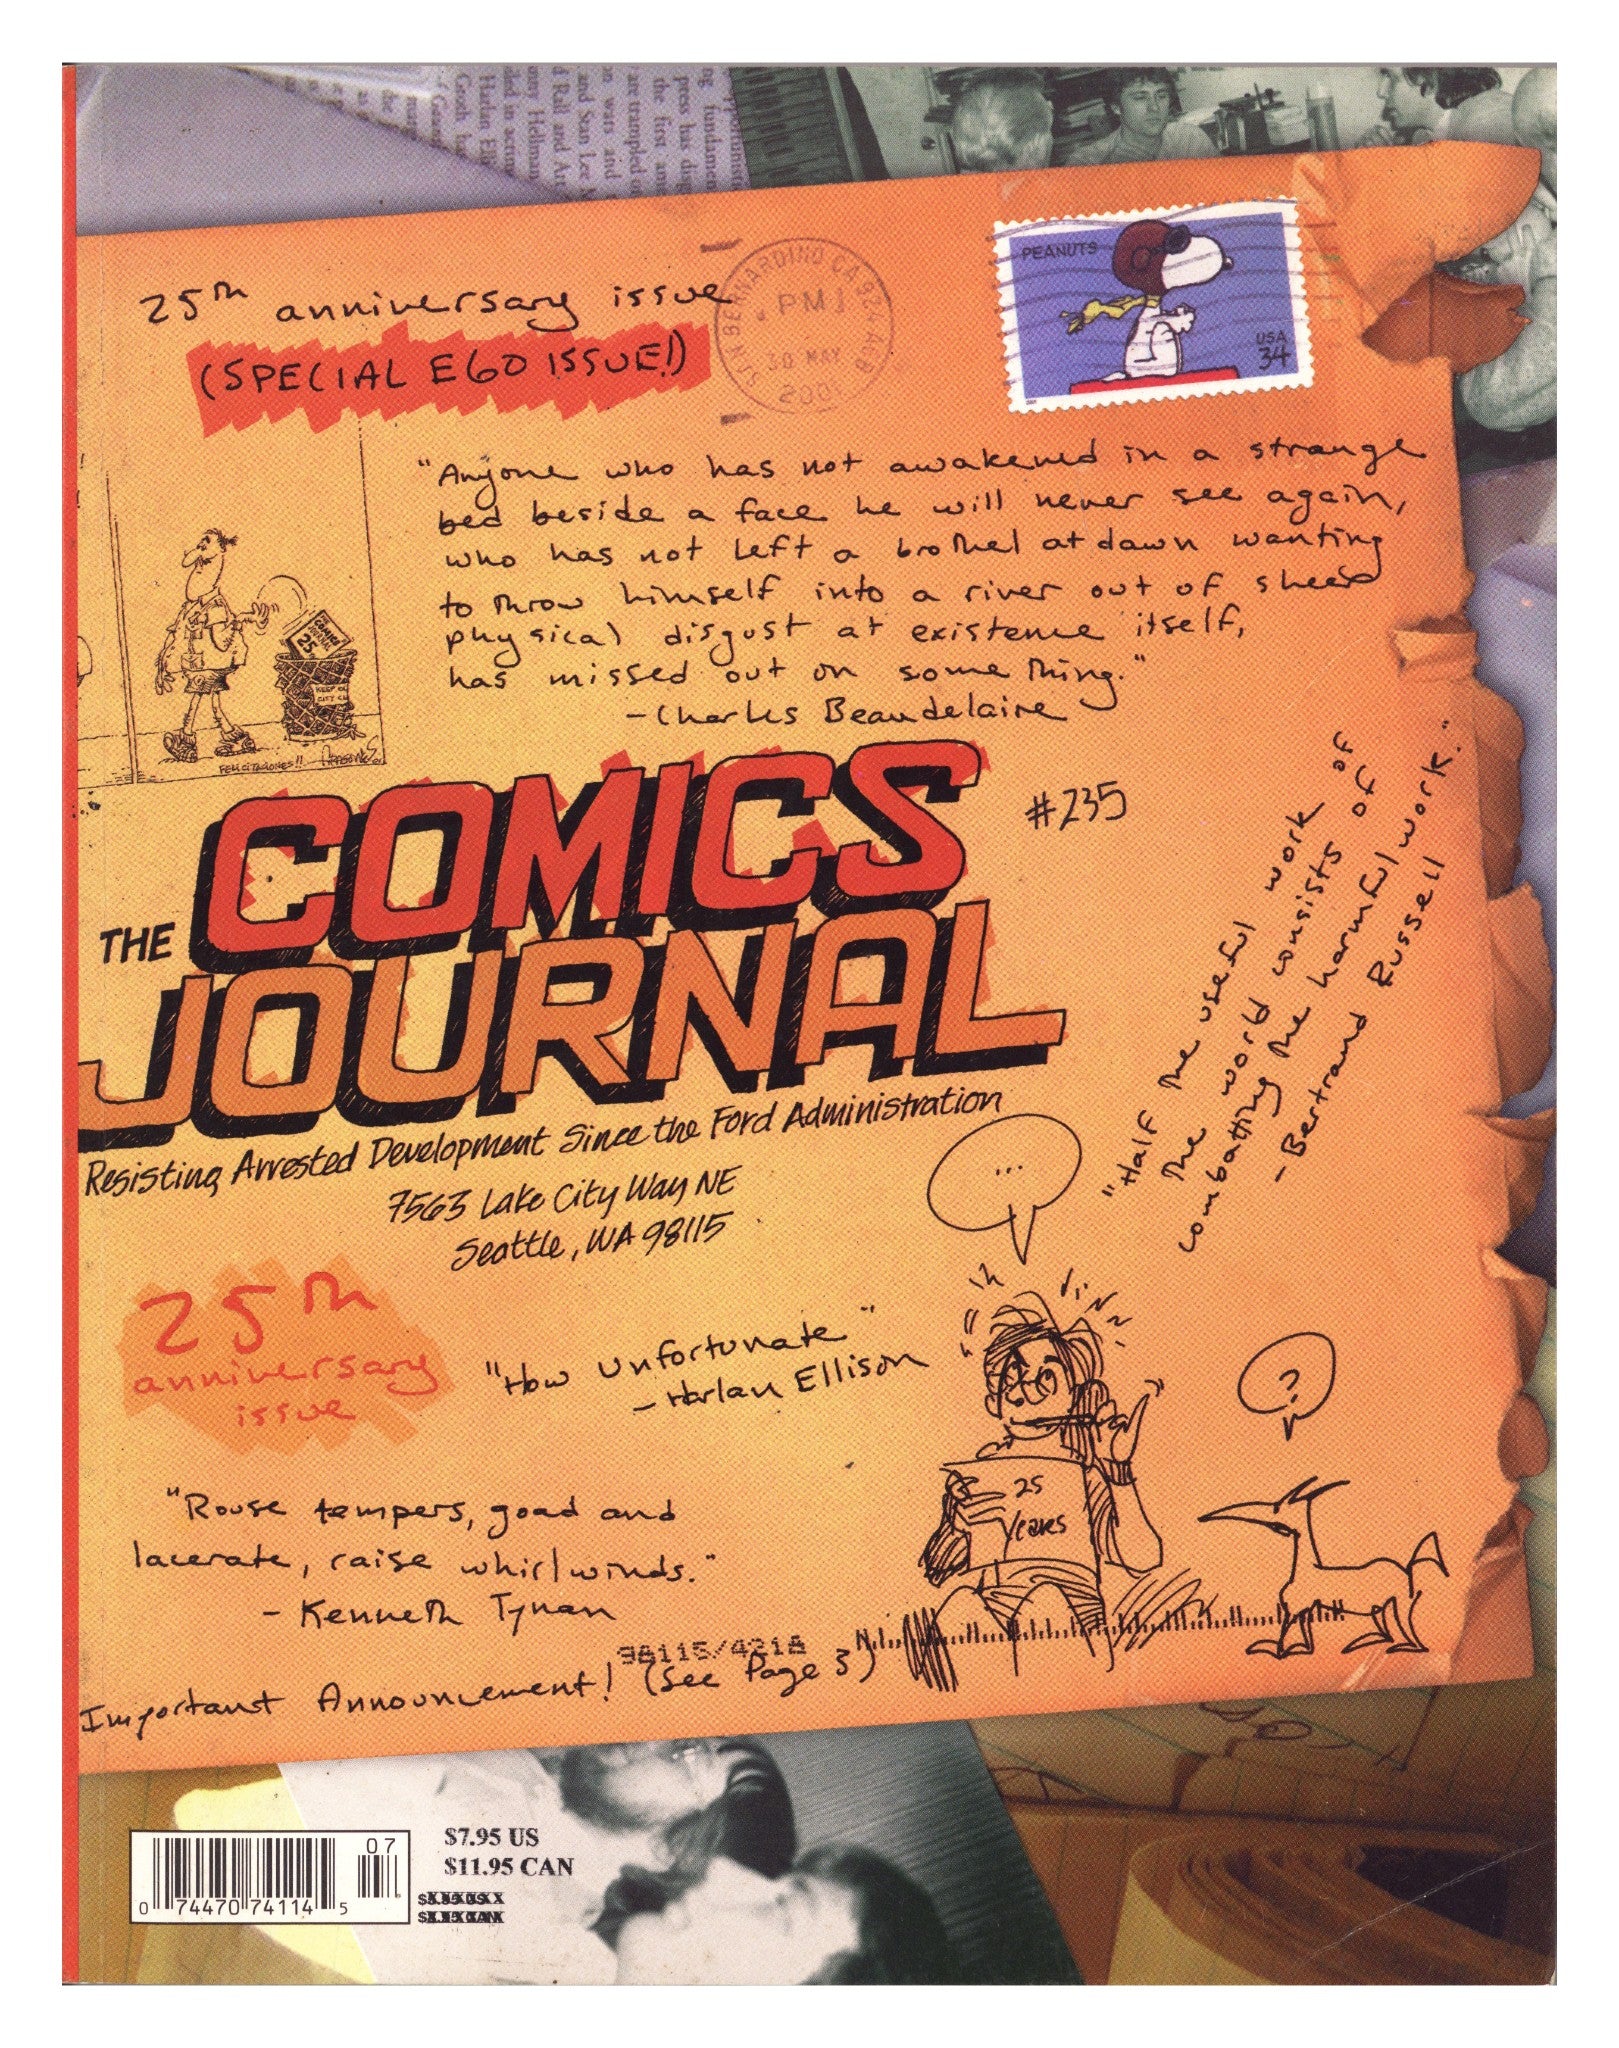 25th anniversary issue
(SPECIAL EGO ISSUE!)
SAN BERNARDINO CA 924
PM
30 MAY
PEANUTS
USA
34
"Anyone who has not awakened in a strange
bed beside a face he will never see again,
who has not left a brothel at dawn wanting
to throw himself into a river out of sheer
physical disgust at existence itself,
has missed out on something."
-Charles Beaudelaire
THE
COMICS
JOURNAL
25
FELICITACIONES!!
#235
THE COMICS
JOURNAL
Resisting Arrested Development Since the Ford Administration
7563 Lake City Way NE
Seattle, WA 98115
"Half the useful work of
the world consists of
combatting the harmful work."
-Bertrand Russell
...
25th
anniversary
issue
"How Unfortunate"
-Harlan Ellison
?
25
Years
"Rouse tempers, goad and
lacerate, raise whirlwinds."
- Kenneth Tynan
98115/4218
Important Announcement! (See Page 3)
07
0 74470 74114 5
$7.95 US
$11.95 CAN